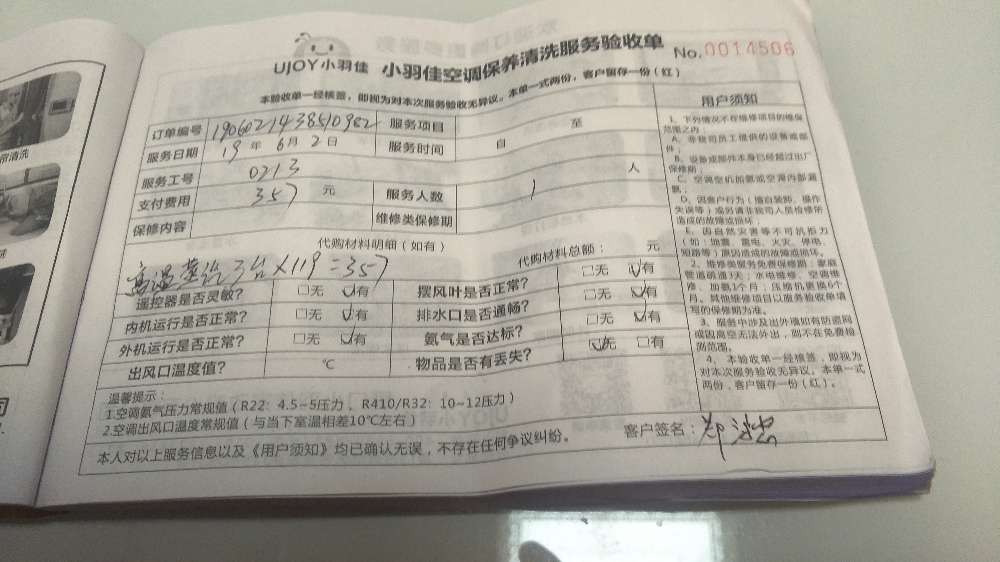 UJOY小羽佳 小羽佳空调保养清洗服务验收单 No.0014506
本验收单一经核签，即视为对本次服务验收无异议。本单一式两份，客户留存一份（红）
订单编号 1906021438510982 服务项目
服务日期 19年6月2日 服务时间 自 至
服务工号 0213
支付费用 357 元 服务人数 1 人
保修内容 维修类保修期
代购材料明细（如有） 代购材料总额： 元
高温蒸汽3台×119=357
遥控器是否灵敏？ □无 ☑有 摆风叶是否正常？ □无 ☑有
内机运行是否正常？ □无 ☑有 排水口是否通畅？ □无 ☑有
外机运行是否正常？ □无 ☑有 氨气是否达标？ □无 ☑有
出风口温度值？ ℃ 物品是否有丢失？ ☑无 □有
温馨提示：
1.空调氨气压力常规值（R22：4.5~5压力，R410/R32：10~12压力）
2.空调出风口温度常规值（与当下室温相差10℃左右）
本人对以上服务信息以及《用户须知》均已确认无误，不存在任何争议纠纷。
客户签名：郑
用户须知
1、下列情况不在维修项目的维保
范围之内
A、非我司员工提供的设备或部
件；
B、设备或部件本身已经超过出厂
保修期；
C、空调空机加氨或空调内部漏
氨；
D、因客户行为（擅自装卸、操作
失误等）或另请非我司人员检修所
造成的故障或损坏；
E、因自然灾害等不可抗拒力
（如：地震、雷电、火灾、停电、
短路等）原因造成的故障或损坏。
2、维修类服务免费保修期：家庭
管道疏通3天；水电维修、空调维
修、加氨1个月；压缩机更换6个
月。其他维修项目以服务验收单填
写的保修期为准。
3、服务中涉及出外墙如有防盗网
或因高空无法外出，则不在免费检
测范围。
4、本验收单一经核签，即视为
对本次服务验收无异议。本单一式
两份，客户留存一份（红）。
清洗
司